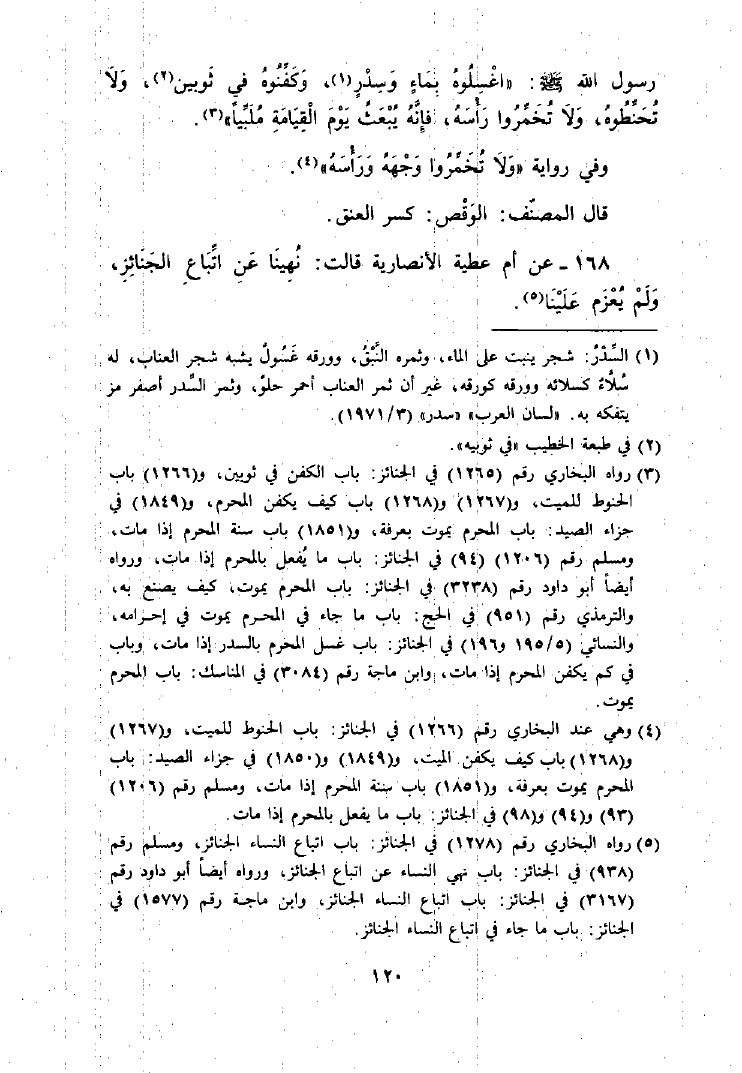 رسول الله ﷺ: «اغْسِلُوهُ بِمَاءٍ وَسِدْرٍ(١)، وَكَفِّنُوهُ في ثَوبين(٢)، وَلَا
تُحَنِّطُوهُ، وَلَا تُخَمِّرُوا رَأْسَهُ، فإنَّهُ يُبْعَثُ يَوْمَ الْقِيَامَةِ مُلَبِّياً»(٣).
وفي رواية «وَلَا تُخَمِّرُوا وَجْهَهُ وَرَأْسَهُ»(٤).
قال المصنّف: الوَقْص: كسر العنق.
١٦٨ - عن أم عطية الأنصارية قالت: نُهِينَا عَنِ اتِّبَاعِ الجَنَائِزِ،
وَلَمْ يُعْزَم عَلَيْنَا(٥).
(١) السِّدْرُ: شجر ينبت على الماء، وثمره النَّبْقُ، وورقه غَسُولٌ يشبه شجر العناب، له
سُلَّاءٌ كسلائه وورقه كورقه، غير أن ثمر العناب أحمر حلوٌ، وثمر السَّدر أصفر مز
يتفكه به. «لسان العرب» «سدر» (٣/١٩٧١).
(٢) في طبعة الخطيب «في ثوبيه».
(٣) رواه البخاري رقم (١٢٦٥) في الجنائز: باب الكفن في ثوبين، و(١٢٦٦) باب
الحنوط للميت، و(١٢٦٧) و(١٢٦٨) باب كيف يكفن المحرم، و(١٨٤٩) في
جزاء الصيد: باب المحرم يموت بعرفة، و(١٨٥١) باب سنة المحرم إذا مات،
ومسلم رقم (١٢٠٦) (٩٤) في الجنائز: باب ما يُفعل بالمحرم إذا مات، ورواه
أيضاً أبو داود رقم (٣٢٣٨) في الجنائز: باب المحرم يموت، كيف يصنع به،
والترمذي رقم (٩٥١) في الحج: باب ما جاء في المحرم يموت في إحرامه،
والنسائي (١٩٥/٥ و١٩٦) في الجنائز: باب غسل المحرم بالسدر إذا مات، وباب
في كم يكفن المحرم إذا مات، وابن ماجة رقم (٣٠٨٤) في المناسك: باب المحرم
يموت.
(٤) وهي عند البخاري رقم (١٢٦٦) في الجنائز: باب الحنوط للميت، و(١٢٦٧)
و(١٢٦٨) باب كيف يكفن الميت، و(١٨٤٩) و(١٨٥٠) في جزاء الصيد: باب
المحرم يموت بعرفة، و(١٨٥١) باب سنة المحرم إذا مات، ومسلم رقم (١٢٠٦)
(٩٣) و(٩٤) و(٩٨) في الجنائز: باب ما يفعل بالمحرم إذا مات.
(٥) رواه البخاري رقم (١٢٧٨) في الجنائز: باب اتباع النساء الجنائز، ومسلم رقم
(٩٣٨) في الجنائز: باب نهي النساء عن اتباع الجنائز، ورواه أيضاً أبو داود رقم
(٣١٦٧) في الجنائز: باب اتباع النساء الجنائز، وابن ماجة رقم (١٥٧٧) في
الجنائز: باب ما جاء في اتباع النساء الجنائز.
١٢٠